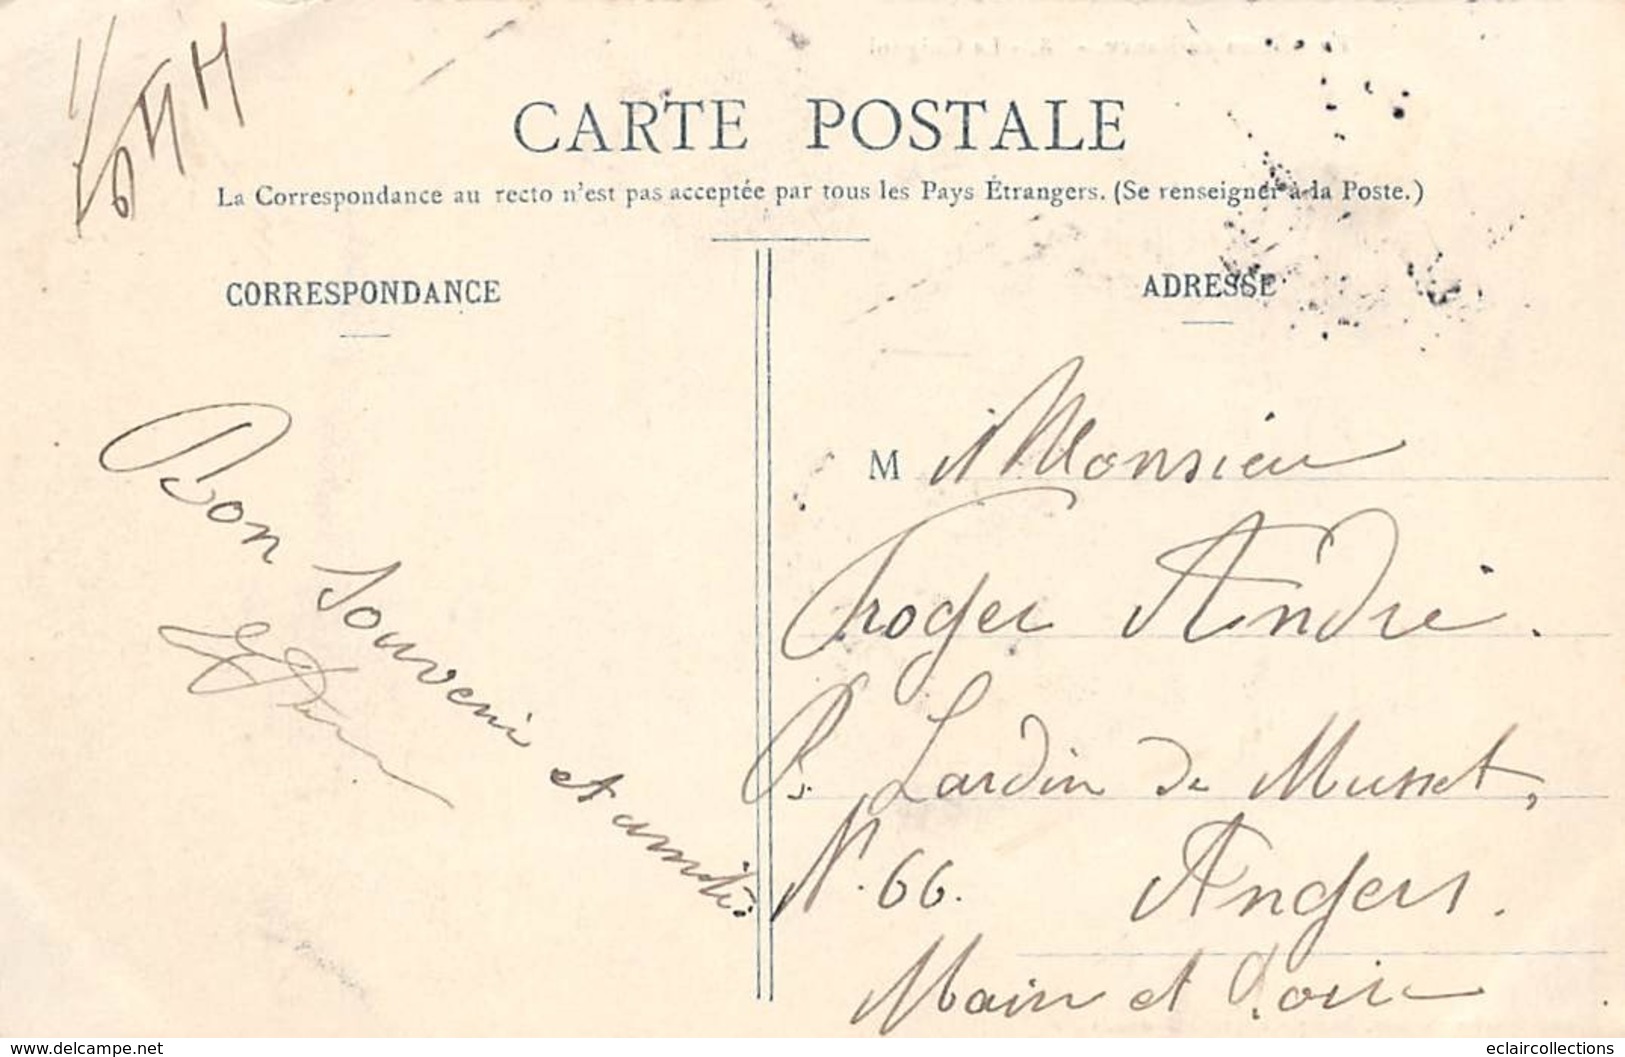 CARTE POSTALE
La Correspondance au recto n'est pas acceptée par tous les Pays Étrangers. (Se renseigner à la Poste.)
CORRESPONDANCE
Bon souvenir et amitié.
ADRESSE
M Monsieur
Froger André.
Jardin de Musset,
N. 66. Angers.
Main et Loire
www.delcampe.net
eclaircollections